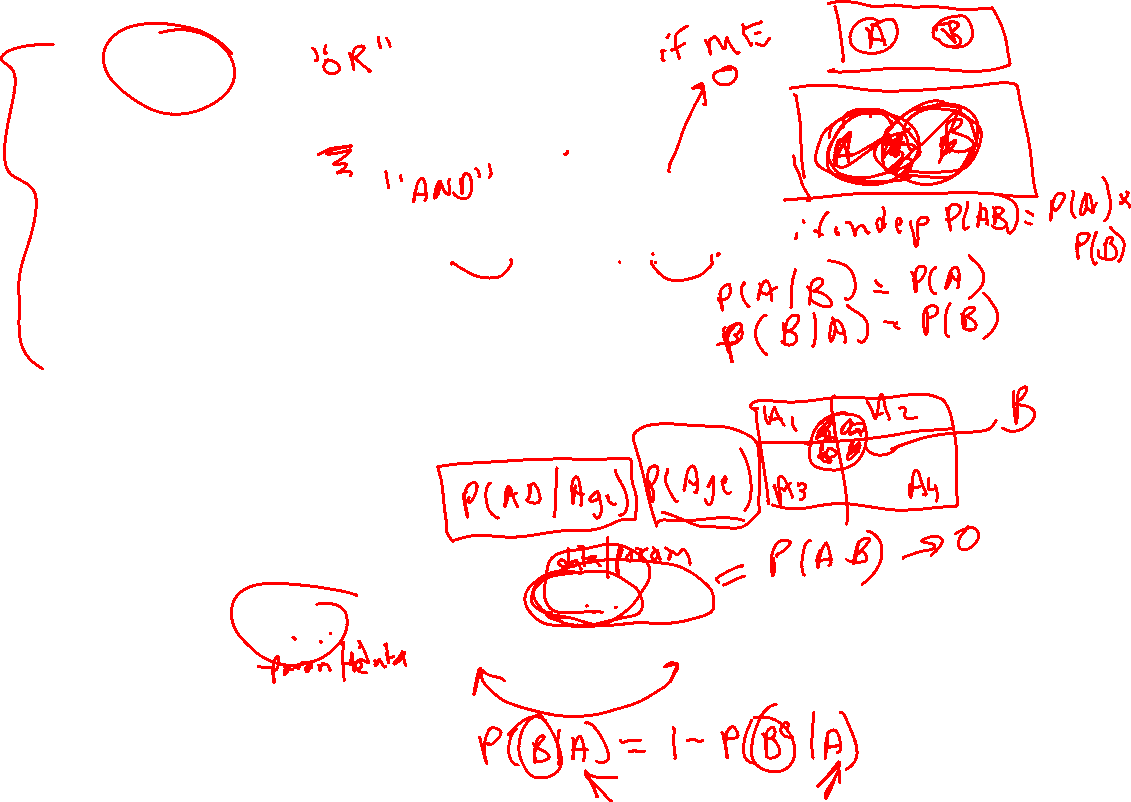 "OR"
if ME
0
A B
"AND"
A B
if indep P(AB) = P(A) x
P(B)
P(A|B) = P(A)
P(B|A) = P(B)
A1 A2
B
A3 A4
P(AD|Age) P(Age)
data|param
= P(AB) → 0
param|data
P(B|A) = 1 - P(Bᶜ|A)